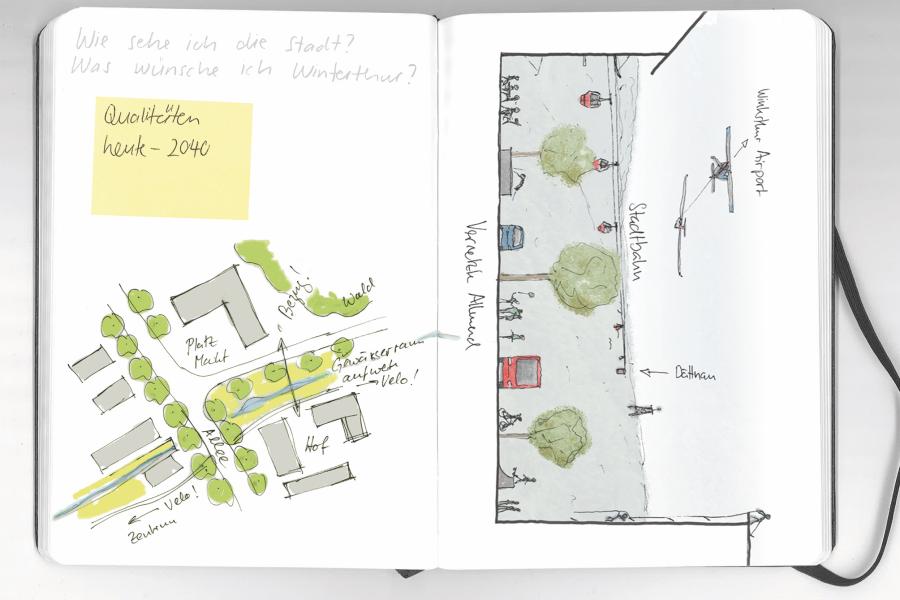 Wie sehe ich die Stadt?
Was wünsche ich Winterthur?
Qualitäten
heute - 2040
Bezug!
Wald
Platz
Markt
Gewässerraum
aufwerten
→ Velo!
Allee
Hof
Velo!
Zentrum
Vernetzte Allmend
Stadtbahn
Winterthur Airport
Dättnau